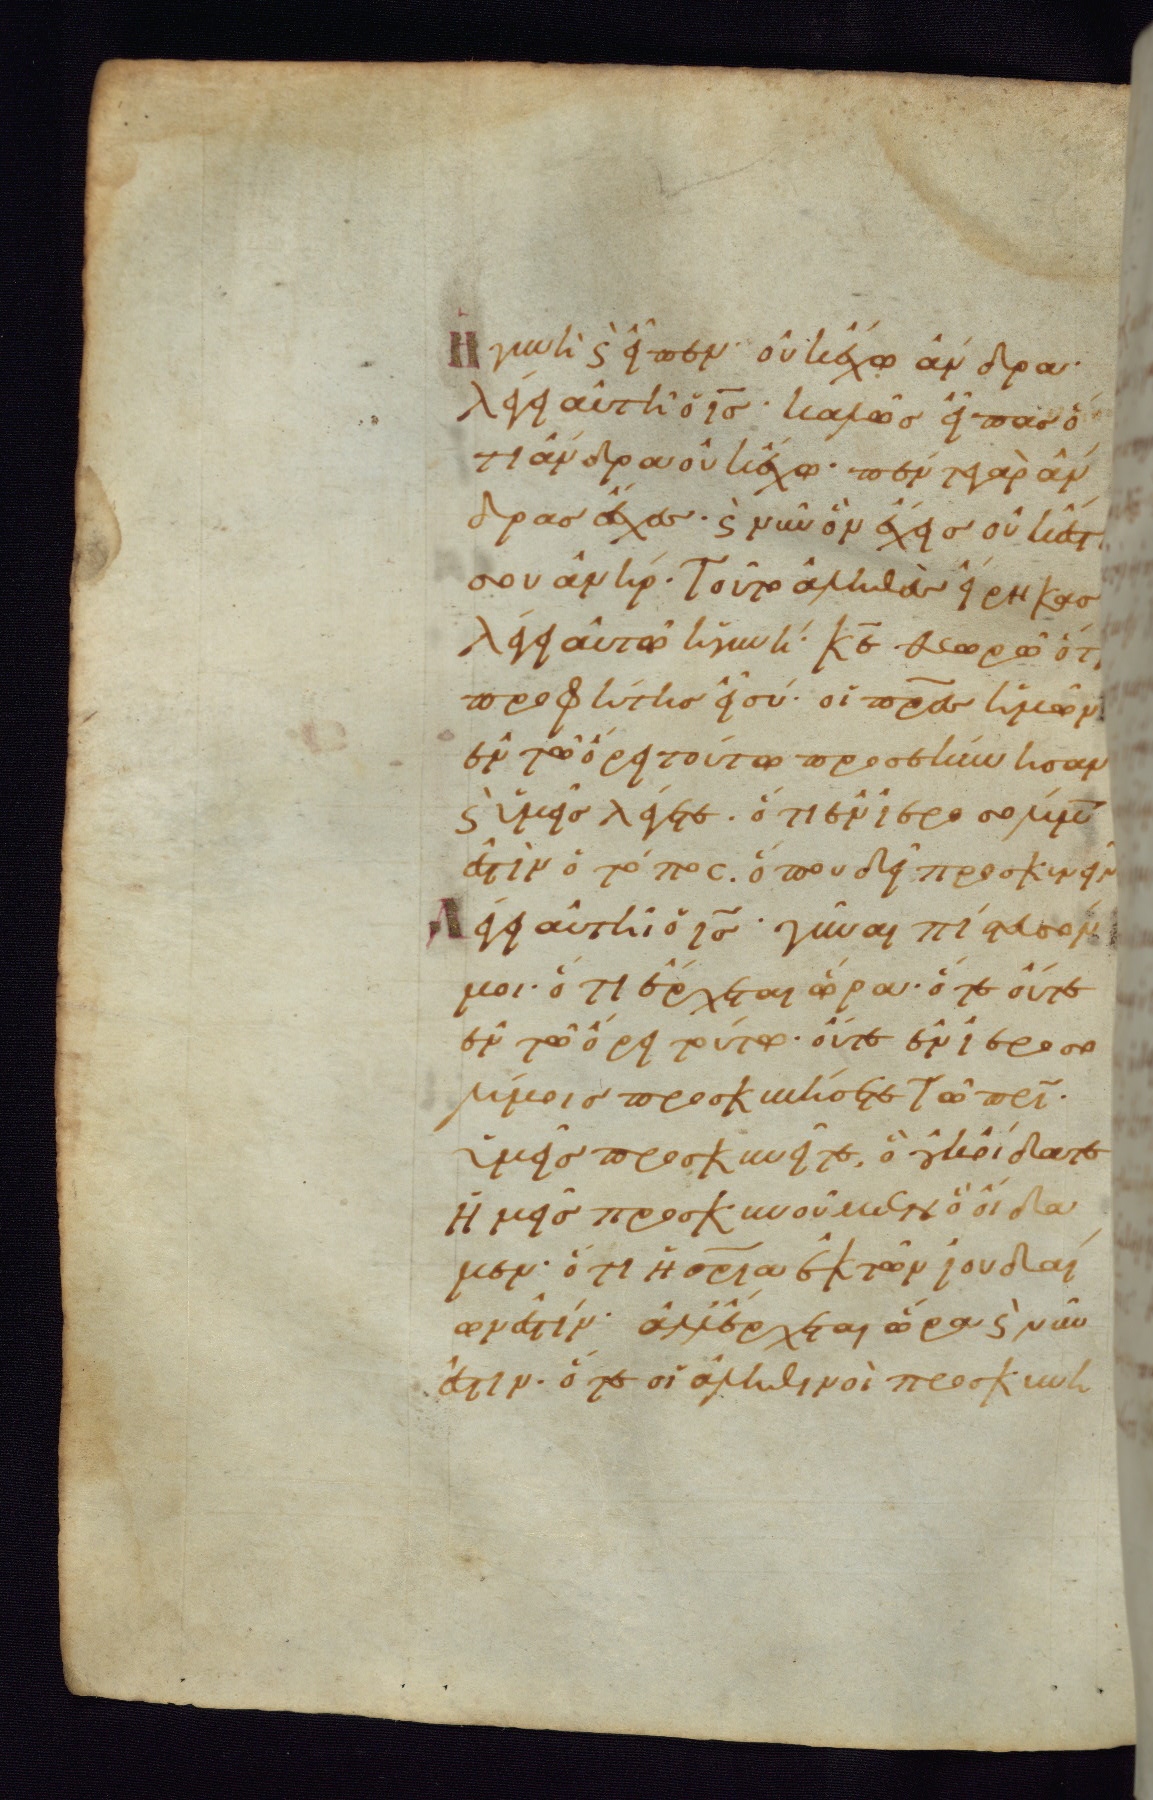 Ἡ γυνὴ ϛ εἶπεν· οὐκ ἔχω ἄνδρα·
λέγει αὐτῆ ὁ ις̅· καλῶς εἶπας ὅ
τι ἄνδρα οὐκ ἔχω· πέντε γὰρ ἄν
δρας ἔσχες· ϛ νῦν ὃν ἔχεις οὐκ ἔστι
σου ἀνήρ· Τοῦτο ἀληθὲς εἴρηκας
λέγει αὐτῶ ἡ γυνή· κε̅ θεωρῶ ὅτι
προφήτης εἶ σύ· οἱ πρ̅ες ἡμῶν
ἐν τῶ ὄρει τούτω προσεκύνησαν
ϛ ὑμεῖς λέγετε· ὅτι ἐν ἱεροσολύμοις
ἐστὶν ὁ τόπος. ὅπου δεῖ προσκυνεῖν
Λέγει αὐτῆ ὁ ις̅· γύναι πίστευσόν
μοι· ὅτι ἔρχεται ὥρα· ὅτε οὔτε
ἐν τῶ ὄρει τούτω· οὔτε ἐν ἱεροσο
λύμοις προσκυνήσετε Τῶ πρι̅·
ὑμεῖς προσκυνεῖτε, ὃ οὐκ οἴδατε
Ἡμεῖς προσκυνοῦμεν ὃ οἴδα
μεν· ὅτι ἡ σρ̅ια ἐκ τῶν ἰουδαί
ων ἐστίν· ἀλλ' ἔρχεται ὥρα ϛ νῦν
ἐστιν· ὅτε οἱ ἀληθινοὶ προσκυνη